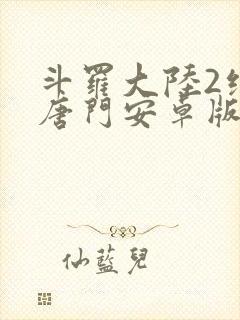 斗羅大陸2絕
唐門安卓版
仙藍兒